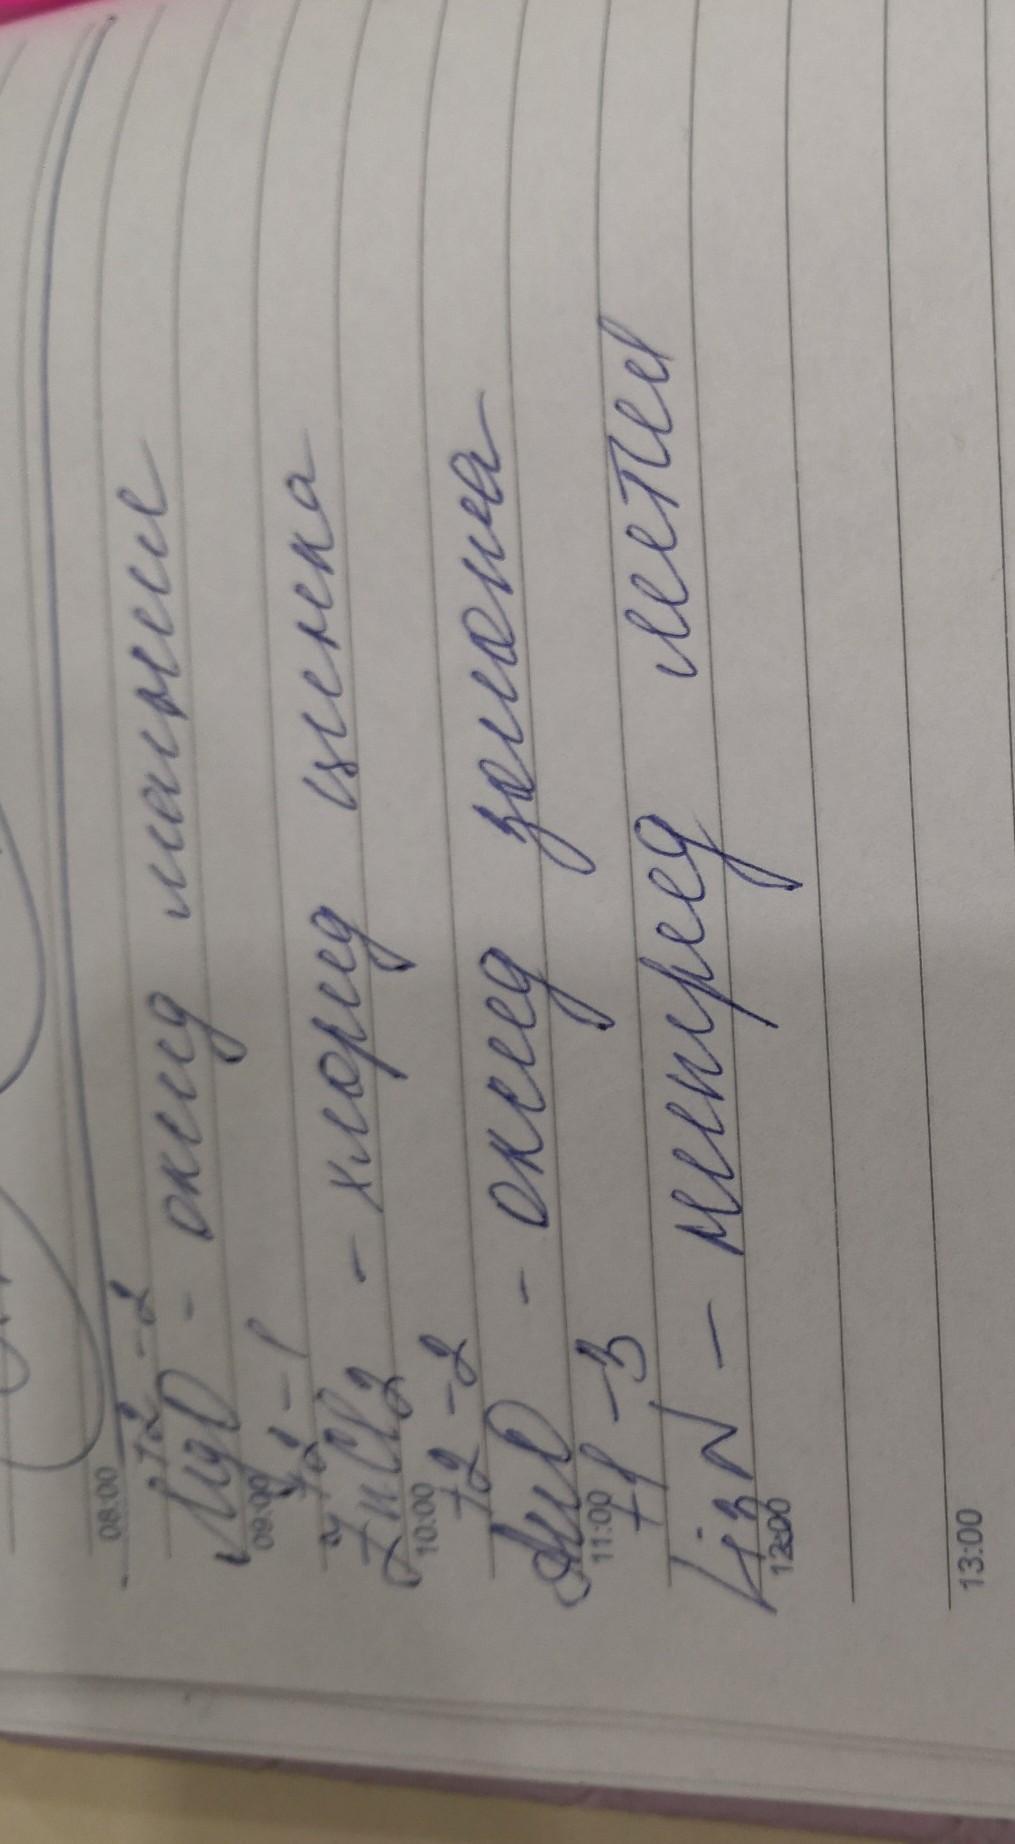 08:00
+2 -2
MgO - оксид магния
09:00
+2 -1
ZnCl2 - хлорид цинка
10:00
+2 -2
AuO - оксид золота
11:00
+1 -3
Li3N - нитрид лития
12:00
13:00